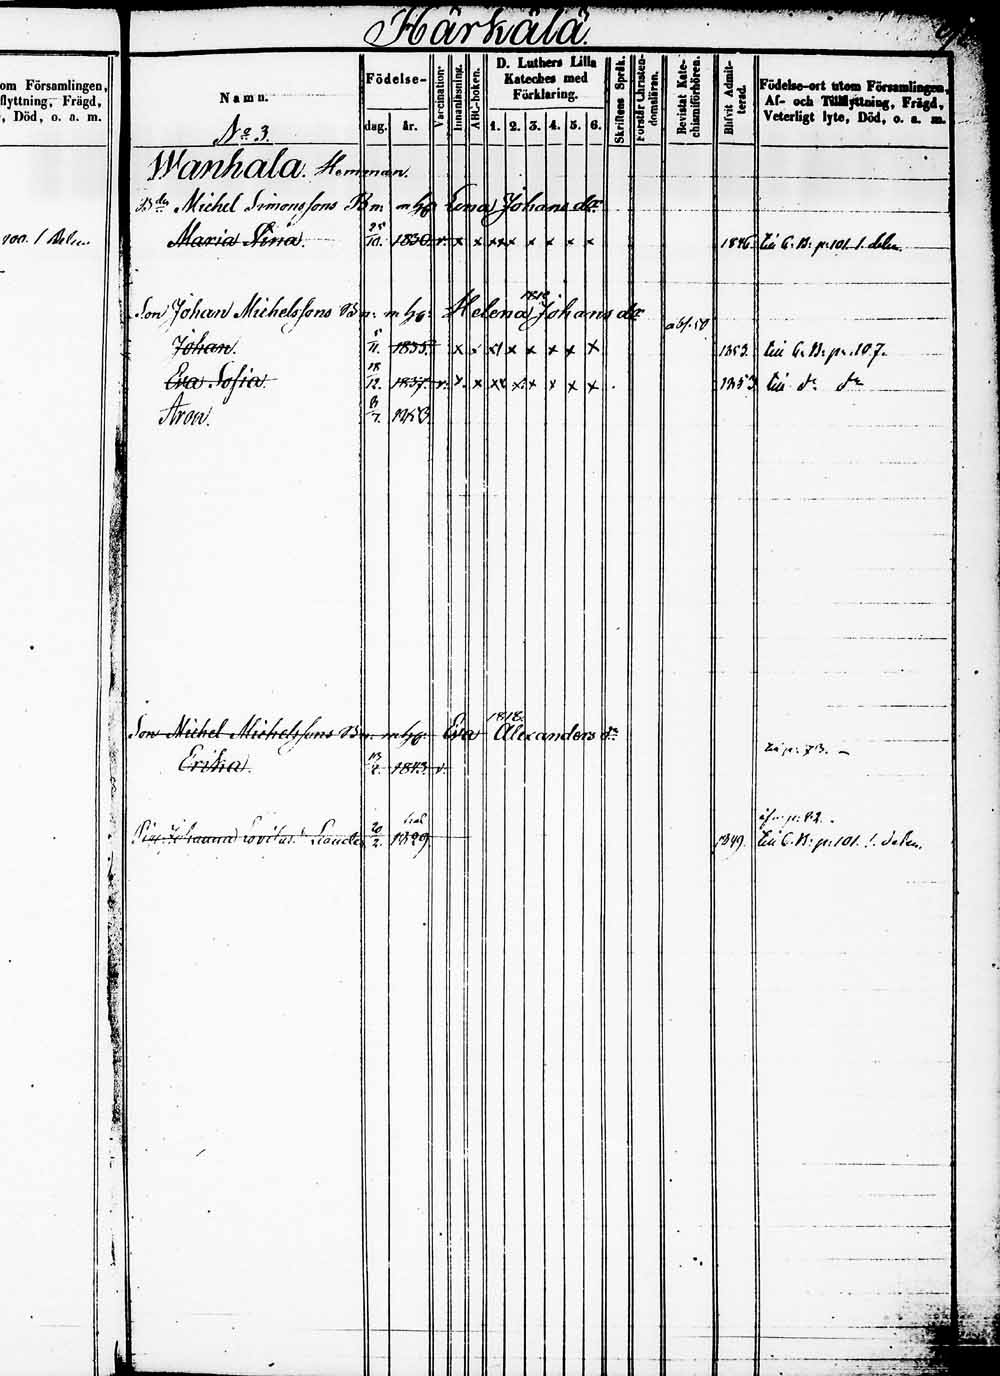 Härkälä.
om Församlingen,
flyttning, Frägd,
, Död, o. a. m.
Namn.
Födelse-
dag. år.
Vaccination.
Innanläsning.
ABC-boken.
D. Luthers Lilla
Kateches med
Förklaring.
1. 2. 3. 4. 5. 6.
Skriftens Språk.
Förstår Christen-
domsläran.
Bevistat Kate-
chismiförhören.
Blifvit Admit-
terad.
Födelse-ort utom Församlingen,
Af- och Tillflyttning, Frägd,
Veterligt lyte, Död, o. a. m.
No 3.
Wanhala. Hemman.
Michel Simonssons Bm. Lena Johans dr
Maria Stina. 25/10. 1830. v. x x xx x x x x x 1846. till C. B: p: 101. 1. delen.
1812
Son Johan Michelssons Helena Johans dr
Johan. 5/11. 1835. x x x x x x x x 1853. till C. B: p: 107.
Eva Sofia. 18/12. 1837. v. x. x x x x x x x 1853 till do do
Aron. 1850.
1818.
Son Michel Michelssons Eva Alexanders dr
Erika. 13/2. 1843. v.
Johanna Lovisa 20/2. 1829 1849. till C. B: p: 101. 1. delen.